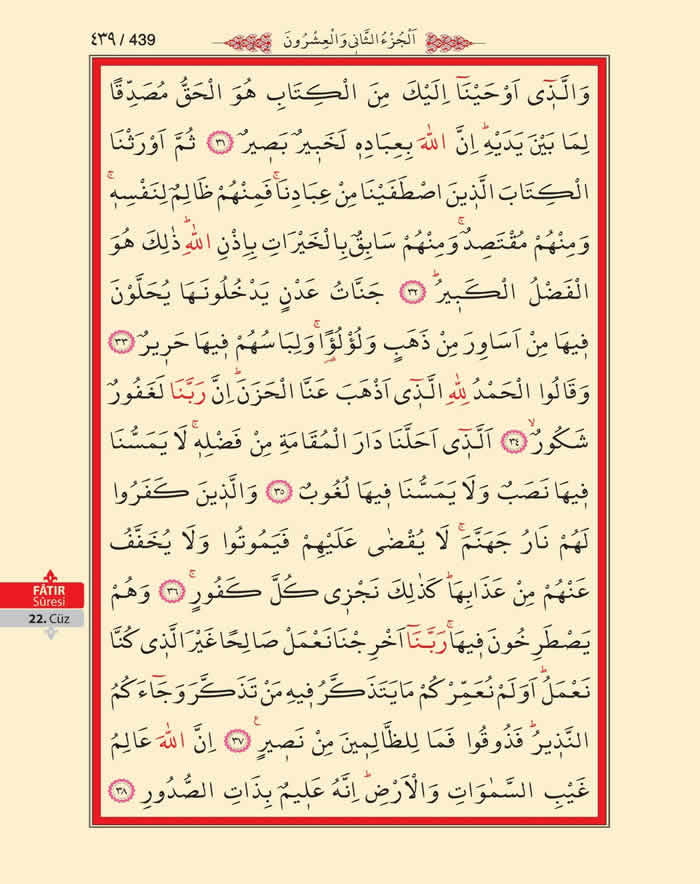 ٤٣٩ / 439
اَلْجُزْءُ الثَّانِي وَالْعِشْرُونَ
وَالَّذ۪ٓي اَوْحَيْنَٓا اِلَيْكَ مِنَ الْكِتَابِ هُوَ الْحَقُّ مُصَدِّقًا
لِمَا بَيْنَ يَدَيْهِۜ اِنَّ اللّٰهَ بِعِبَادِه۪ لَخَب۪يرٌ بَص۪يرٌ ﴿٣١﴾ ثُمَّ اَوْرَثْنَا
الْكِتَابَ الَّذ۪ينَ اصْطَفَيْنَا مِنْ عِبَادِنَاۚ فَمِنْهُمْ ظَالِمٌ لِنَفْسِه۪ۚ
وَمِنْهُمْ مُقْتَصِدٌۚ وَمِنْهُمْ سَابِقٌ بِالْخَيْرَاتِ بِاِذْنِ اللّٰهِۜ ذٰلِكَ هُوَ
الْفَضْلُ الْكَب۪يرُۜ ﴿٣٢﴾ جَنَّاتُ عَدْنٍ يَدْخُلُونَهَا يُحَلَّوْنَ
ف۪يهَا مِنْ اَسَاوِرَ مِنْ ذَهَبٍ وَلُؤْلُؤً۬اۚ وَلِبَاسُهُمْ ف۪يهَا حَر۪يرٌ ﴿٣٣﴾
وَقَالُوا الْحَمْدُ لِلّٰهِ الَّذ۪ٓي اَذْهَبَ عَنَّا الْحَزَنَۜ اِنَّ رَبَّنَا لَغَفُورٌ
شَكُورٌۙ ﴿٣٤﴾ اَلَّذ۪ٓي اَحَلَّنَا دَارَ الْمُقَامَةِ مِنْ فَضْلِه۪ۚ لَا يَمَسُّنَا
ف۪يهَا نَصَبٌ وَلَا يَمَسُّنَا ف۪يهَا لُغُوبٌ ﴿٣٥﴾ وَالَّذ۪ينَ كَفَرُوا
لَهُمْ نَارُ جَهَنَّمَۚ لَا يُقْضٰى عَلَيْهِمْ فَيَمُوتُوا وَلَا يُخَفَّفُ
عَنْهُمْ مِنْ عَذَابِهَاۜ كَذٰلِكَ نَجْز۪ي كُلَّ كَفُورٍۚ ﴿٣٦﴾ وَهُمْ
يَصْطَرِخُونَ ف۪يهَاۚ رَبَّنَٓا اَخْرِجْنَا نَعْمَلْ صَالِحًا غَيْرَ الَّذ۪ي كُنَّا
نَعْمَلُۜ اَوَلَمْ نُعَمِّرْكُمْ مَا يَتَذَكَّرُ ف۪يهِ مَنْ تَذَكَّرَ وَجَٓاءَكُمُ
النَّذ۪يرُۜ فَذُوقُوا فَمَا لِلظَّالِم۪ينَ مِنْ نَص۪يرٍ۟ ﴿٣٧﴾ اِنَّ اللّٰهَ عَالِمُ
غَيْبِ السَّمٰوَاتِ وَالْاَرْضِۜ اِنَّهُ عَل۪يمٌ بِذَاتِ الصُّدُورِ ﴿٣٨﴾
FÂTIR
Sûresi
22. Cüz